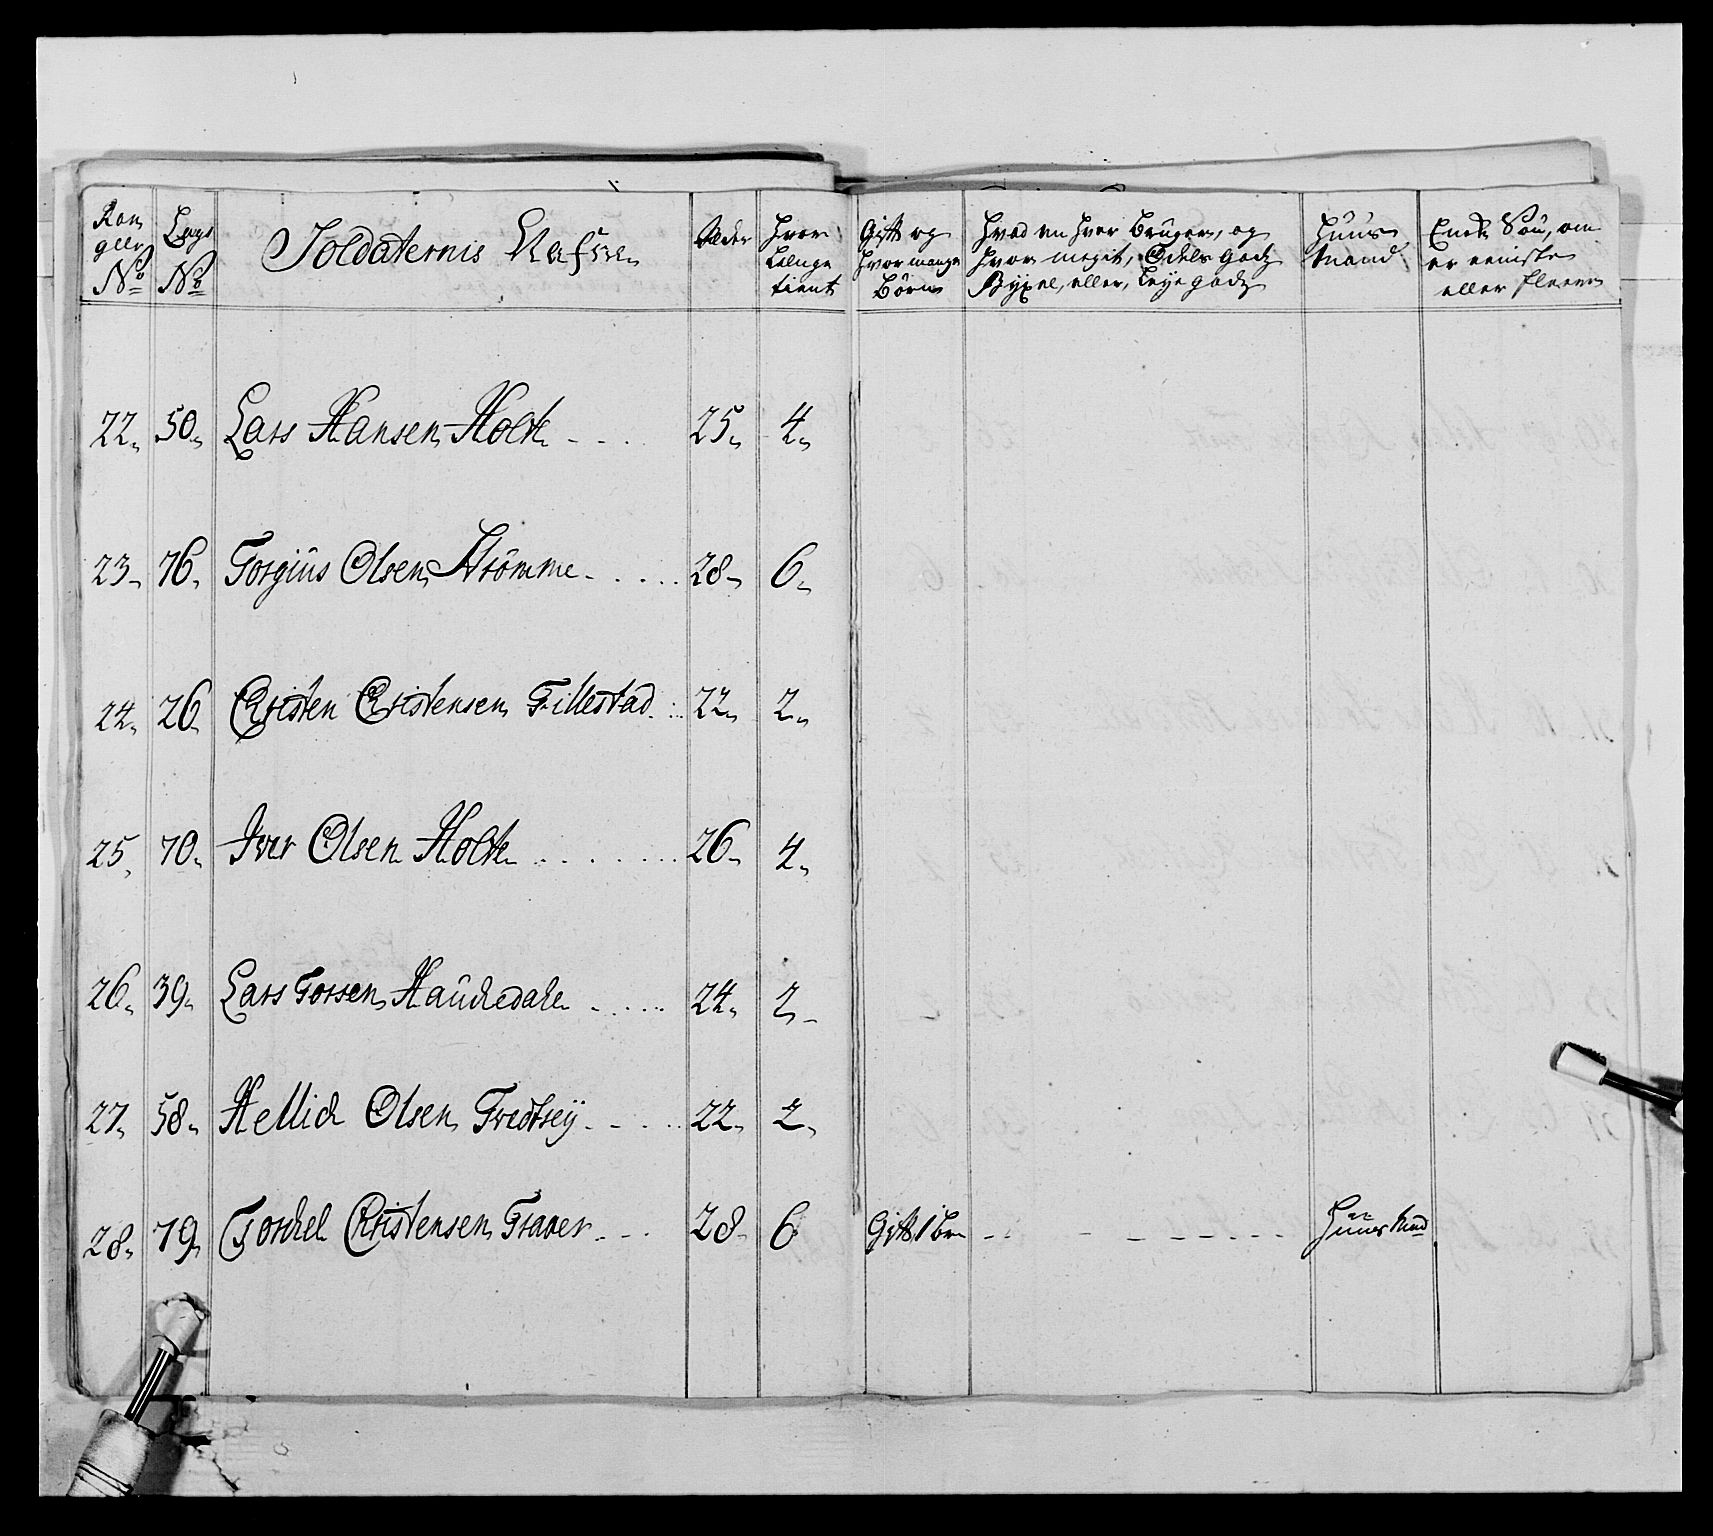 Ran geer No | Legs No | Soldaternis Nafne | Alder | Hvor Længe tient | Gift og Hvor mange Børn | Hvad en Hver Bruger, og Hvor megit, Odels godz Byxel, eller, Leye godz | Huus Mand | Eneste Søn, om er eeniste eller fleere
22. 50. Lars Hansen Holte - - - - 25. 4.
23. 76. Torgius Olsen Strömme - . . . . 28. 6.
24. 26 Christen Cristensen Tillestad . . 22. 2.
25. 70. Iver Olsen Holte . . . . . . 26. 4.
26. 39. Lars Torsen Haukedale . . . . . 24. 2.
27. 58. Hellich Olsen Tvedtsey - - - . . 22. 2.
28. 79. Torkel Cristensen Traaer - - - 28 6 Gift 1 br - - - - - - - - Huusmand